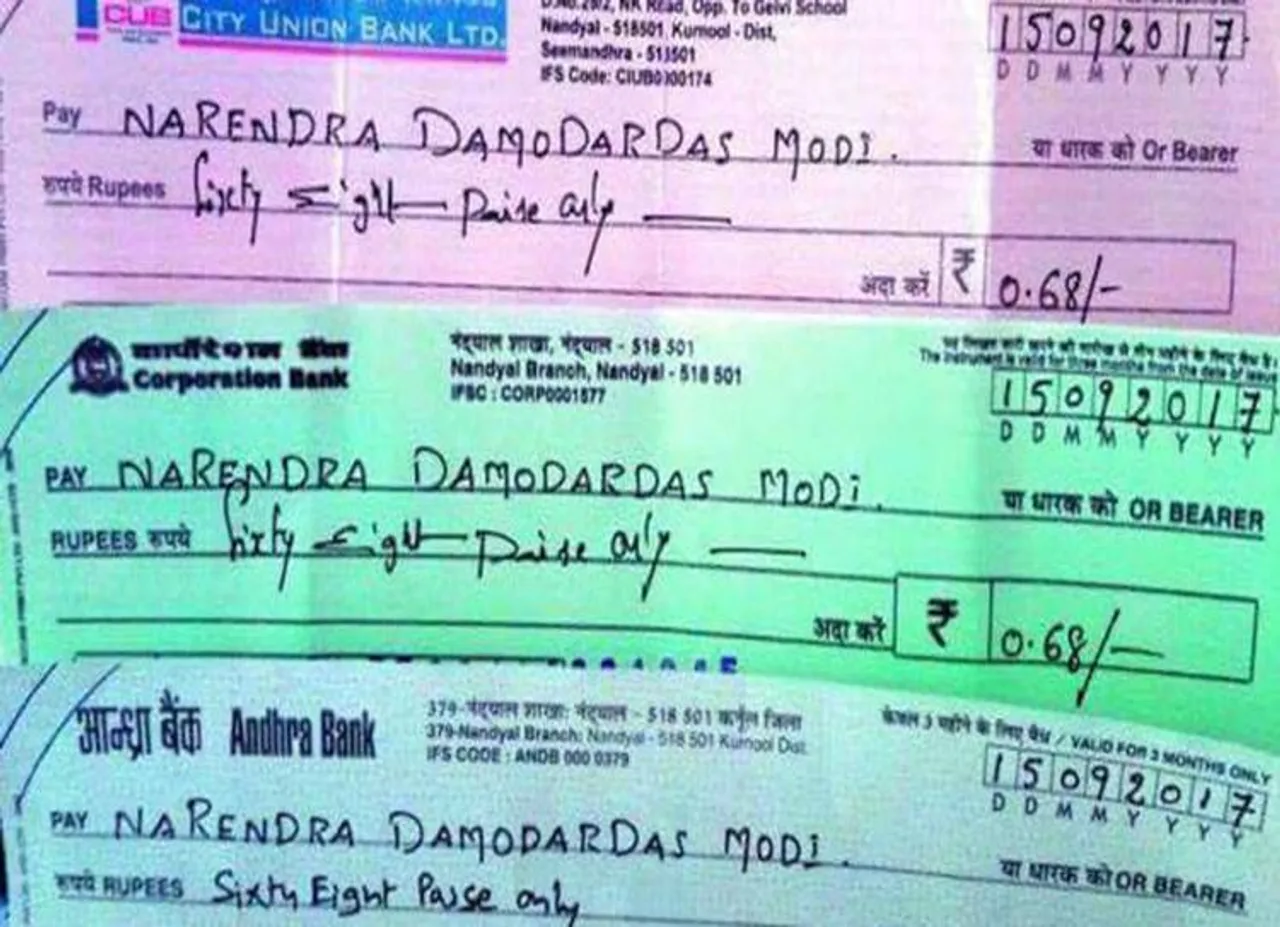 CUB CITY UNION BANK LTD.
D.No.29/2, NK Road, Opp. To Gelvi School
Nandyal - 518501 Kurnool - Dist,
Seemandhra - 518501
IFS Code: CIUB0000174
15092017
D D M M Y Y Y Y
Pay NARENDRA DAMODARDAS MODI. या धारक को Or Bearer
रुपये Rupees Sixty Eight Paise only
अदा करें ₹ 0.68/-
कार्पोरेशन बैंक
Corporation Bank
नंद्याल शाखा, नंद्याल - 518 501
Nandyal Branch, Nandyal - 518 501
IFSC : CORP0001577
यह लिखत जारी करने की तारीख से तीन महीने के लिए वैध है।
The instrument is valid for three months from the date of issue
15092017
D D M M Y Y Y Y
PAY NARENDRA DAMODARDAS MODI. या धारक को OR BEARER
RUPEES रुपये Sixty Eight Paise only
अदा करें ₹ 0.68/-
आन्ध्रा बैंक Andhra Bank
379-नंद्याल शाखा: नंद्याल - 518 501 कर्नूल जिला
379-Nandyal Branch: Nandyal - 518 501 Kurnool Dist.
IFS CODE : ANDB 000 0379
केवल 3 महीने के लिए वैध / VALID FOR 3 MONTHS ONLY
15092017
D D M M Y Y Y Y
PAY NARENDRA DAMODARDAS MODI. या धारक को OR BEARER
रुपये RUPEES Sixty Eight Paise only